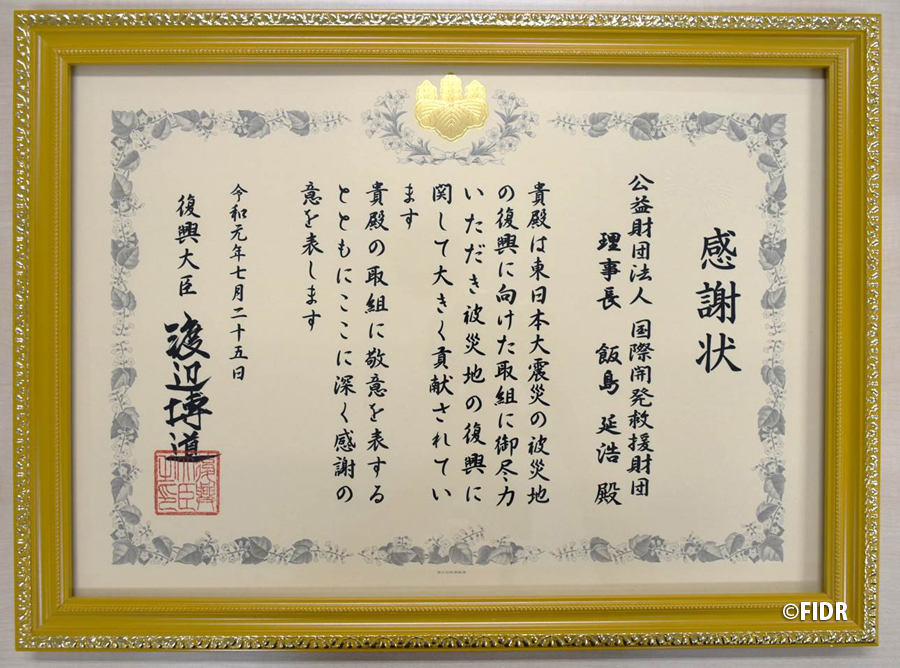 感謝状
公益財団法人 国際開発救援財団
理事長 飯島 延浩 殿
貴殿は東日本大震災の被災地
の復興に向けた取組に御尽力
いただき被災地の復興に
関して大きく貢献されてい
ます
貴殿の取組に敬意を表する
とともにここに深く感謝の
意を表します
令和元年七月二十五日
復興大臣 渡辺博道
復興大臣之印
©FIDR